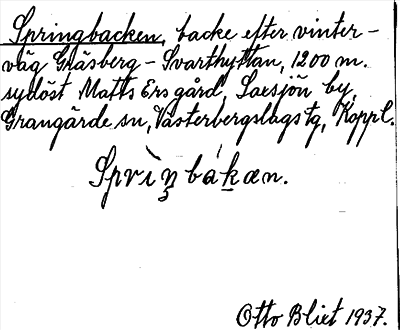 Springbacken, backe efter vinter-
väg Gräsberg - Svarthyttan, 1200 m.
sydöst Matts Ers gård, Saxsjön by,
Grangärde sn, Västerbergslags tg, Koppl.
Sprìŋbákæn.
Otto Blixt 1937.